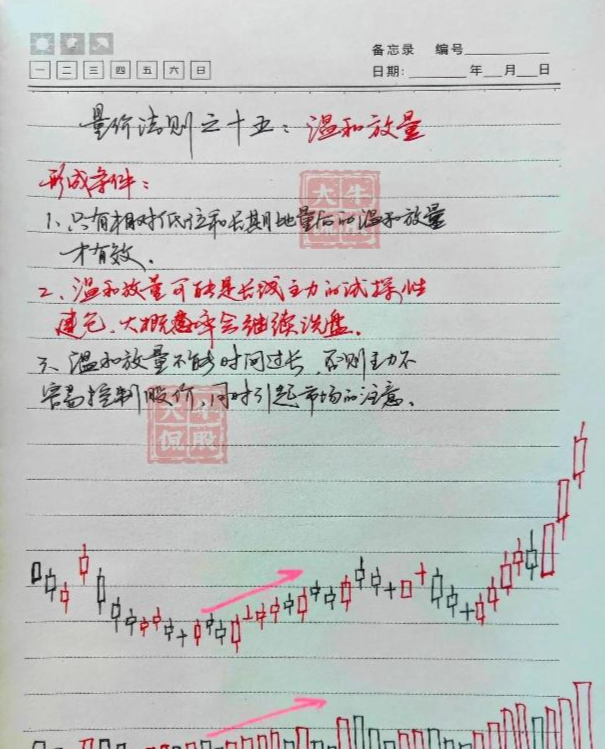 备忘录 编号
一 二 三 四 五 六 日
日期: 年 月 日
量价法则之十五：温和放量
形成条件：
1、只有相对低位和长期地量后的温和放量
才有效。
2、温和放量可能是长线主力的试探性
建仓，大概率会继续洗盘。
3、温和放量不能时间过长，否则主力不
容易控制股价，同时引起市场的注意。
大牛
侃股
大牛
侃股